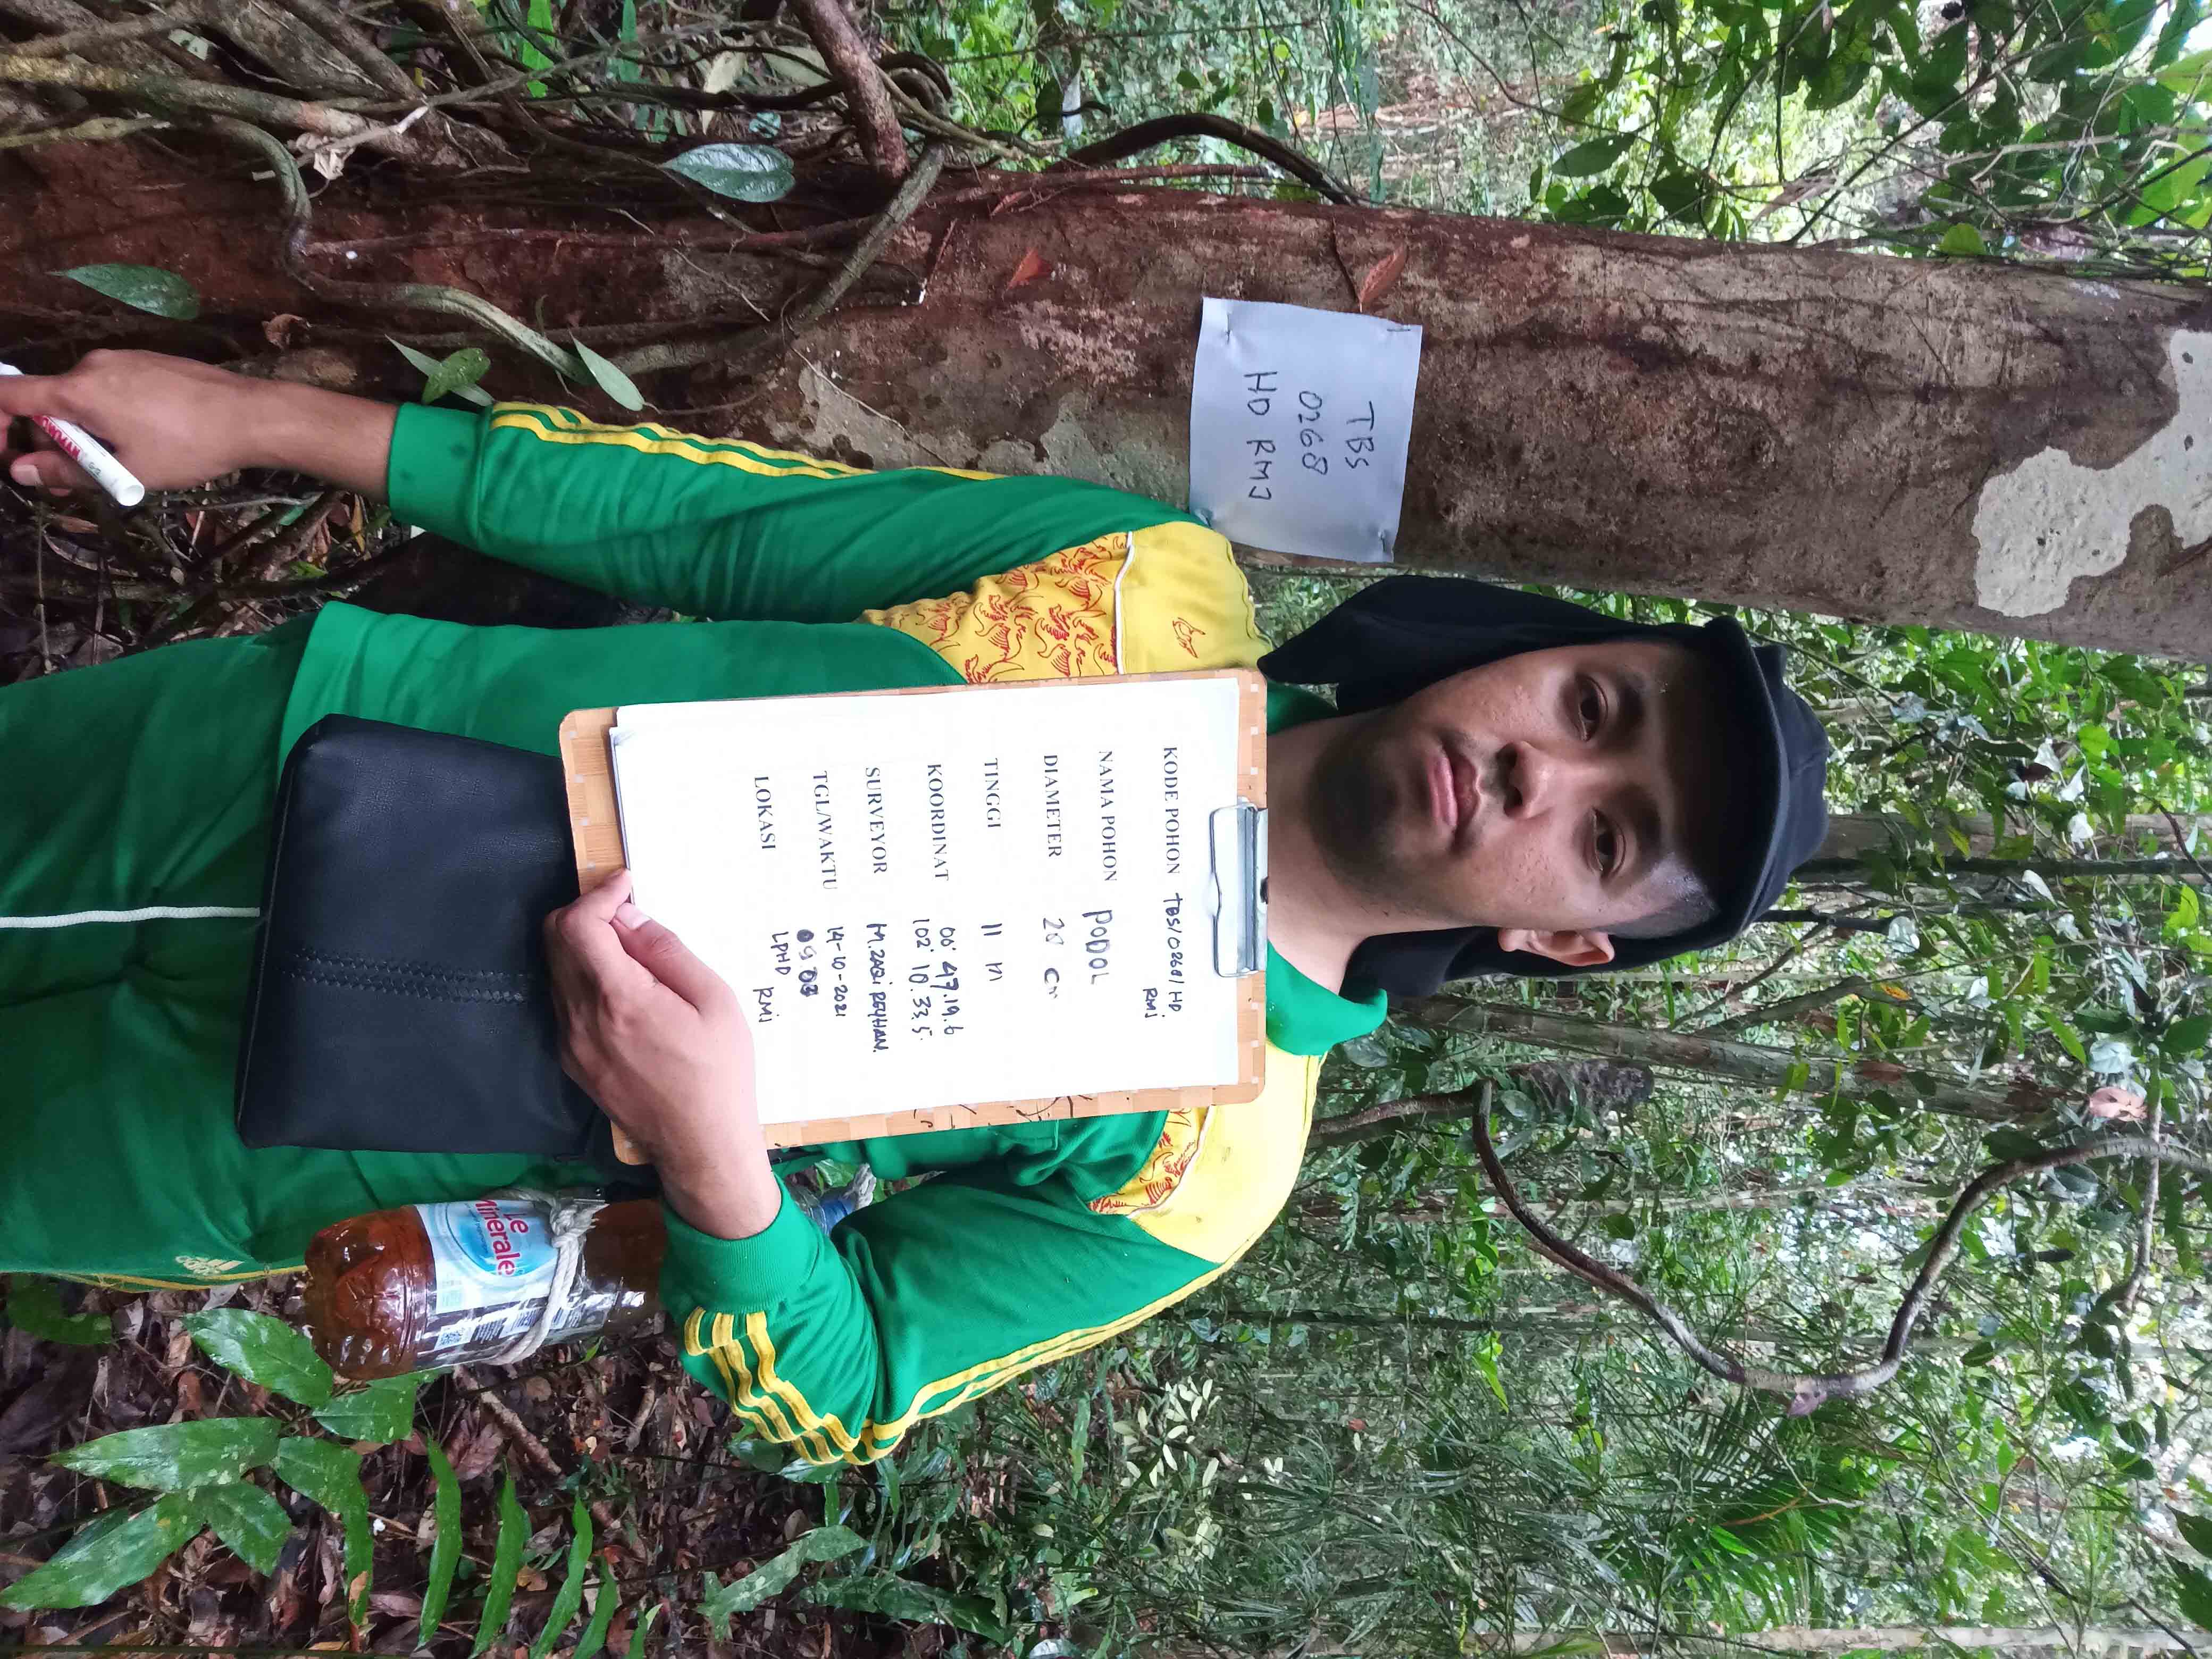 TBS
0268
HD RMJ
KODE POHON TBS/0268/HD
RMJ
NAMA POHON PODOL
DIAMETER 20 cm
TINGGI 11 M
KOORDINAT 00° 47.19.6
102° 10.33,5.
SURVEYOR M.ZAQI REYHAN.
TGL/WAKTU 14-10-2021
LOKASI LPHD RMJ
Le
Minerale